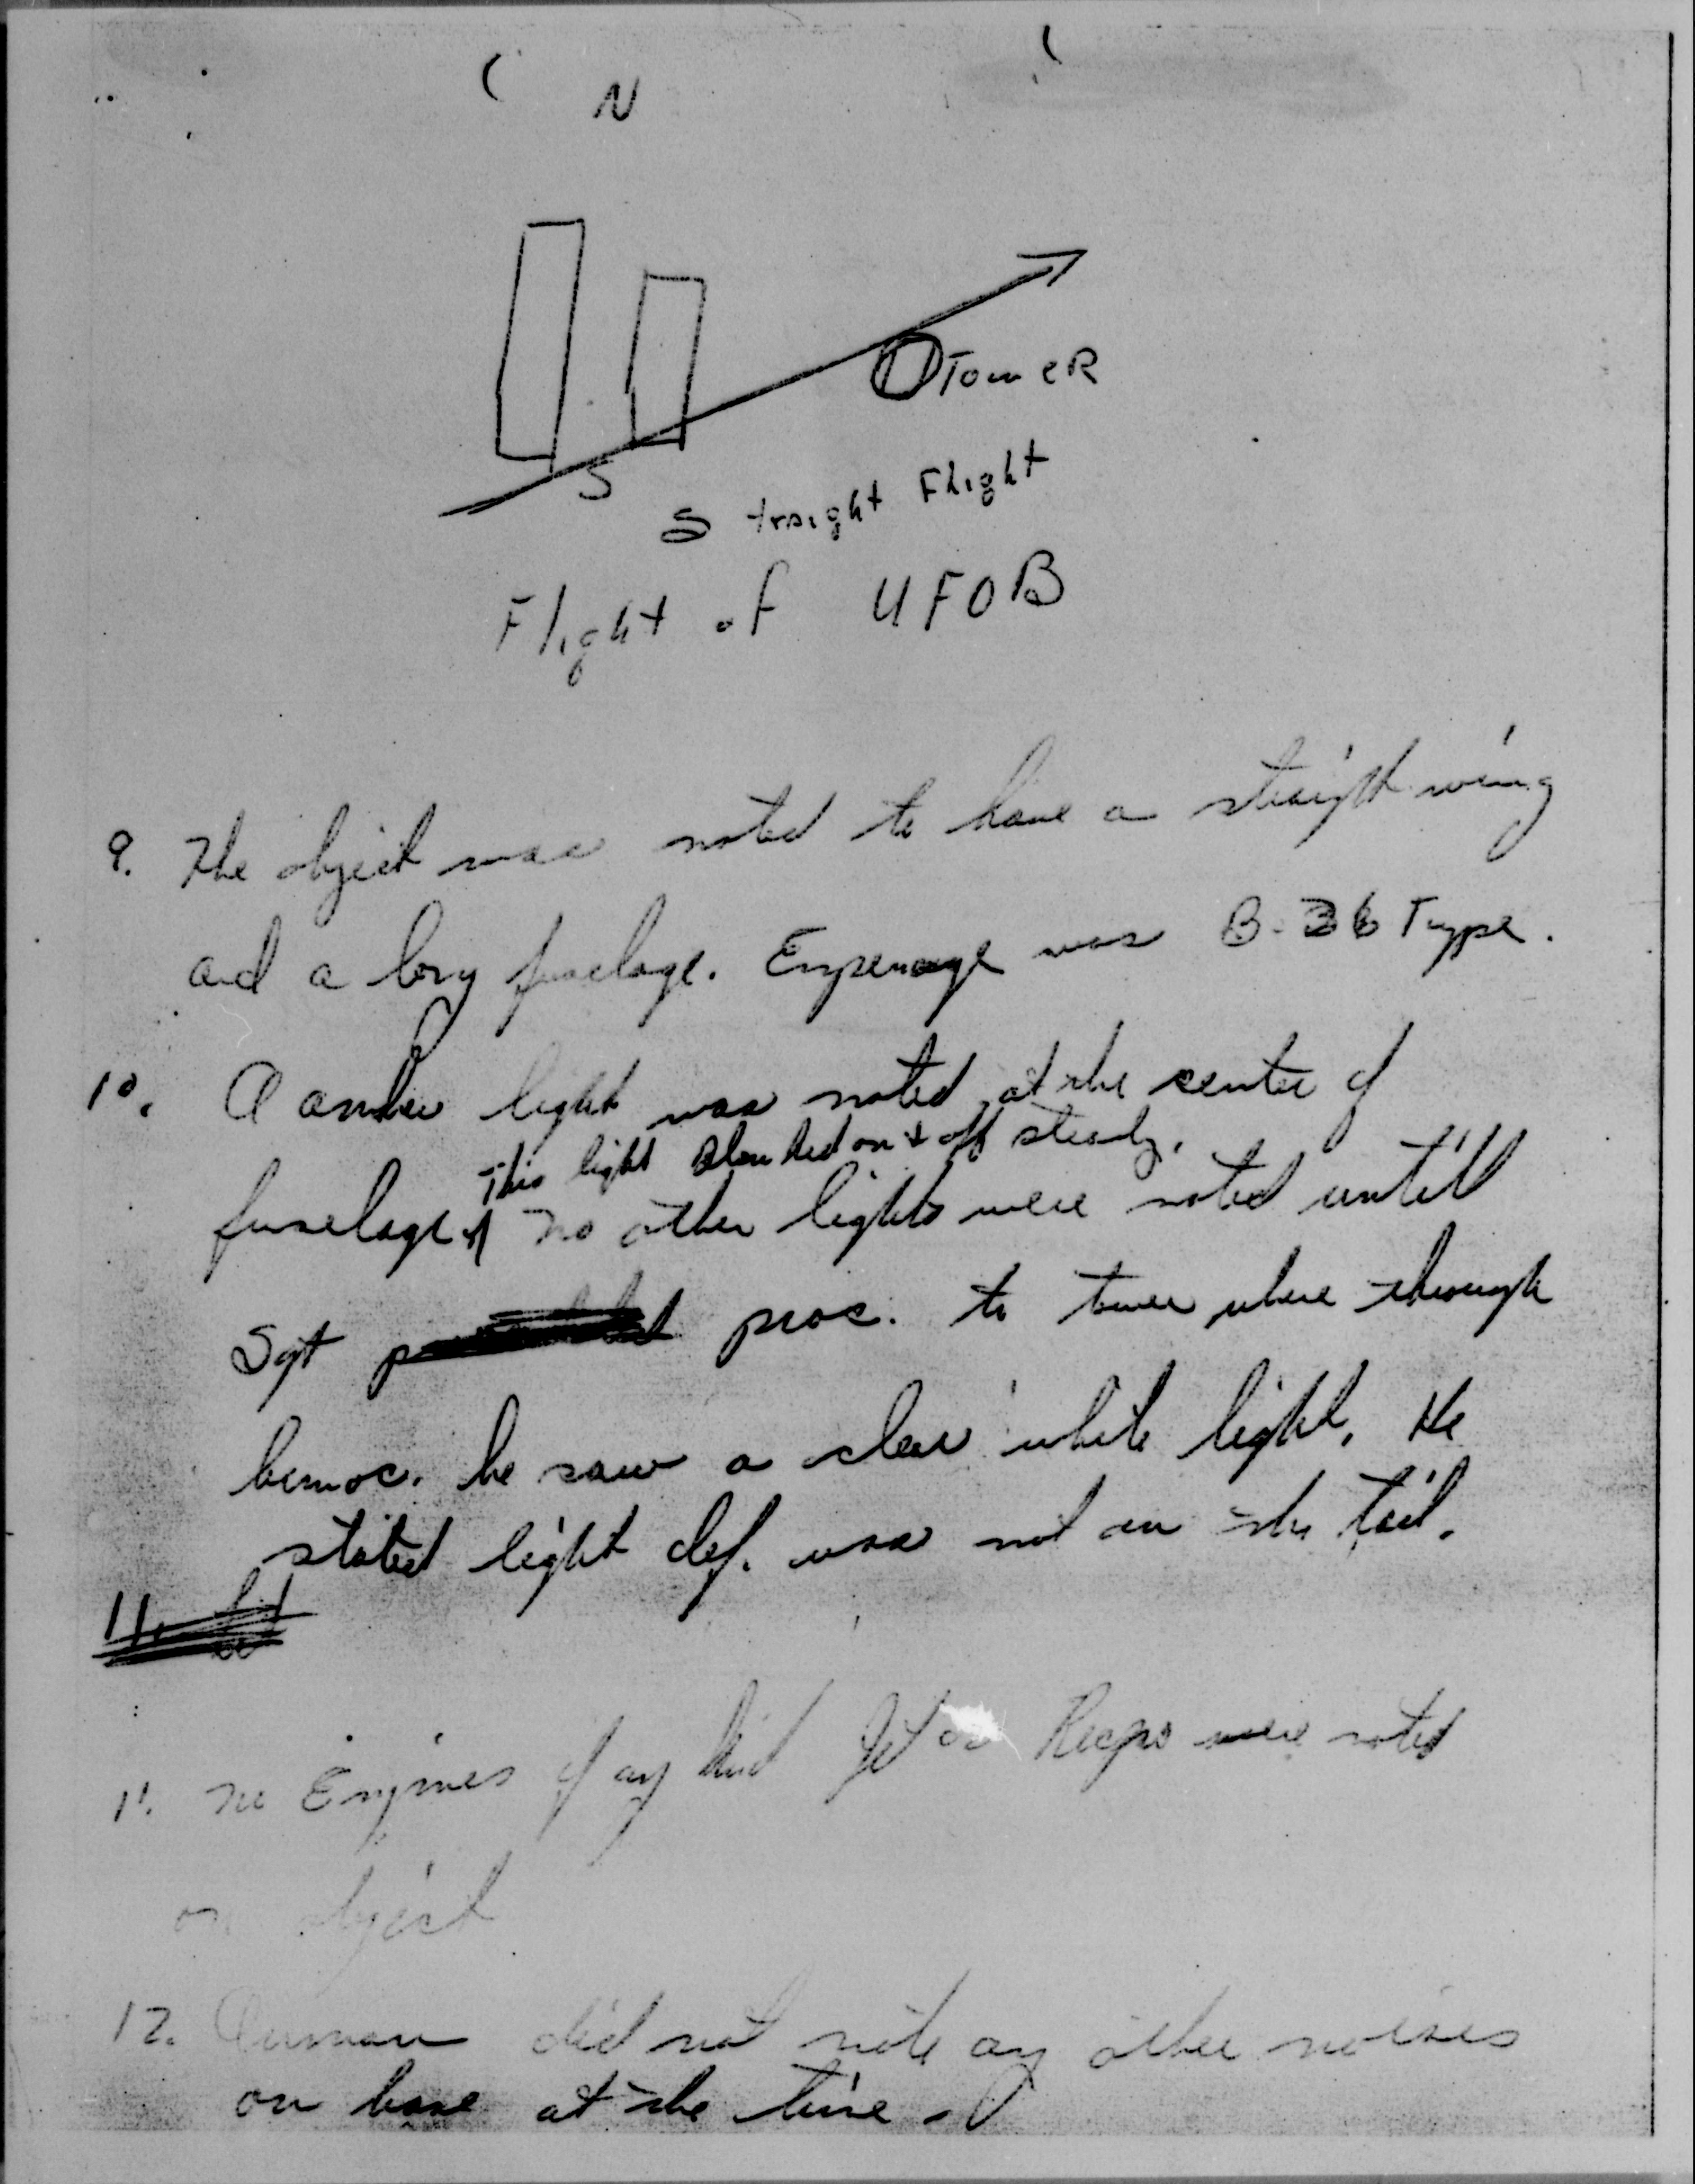 N
Tower
S
Straight Flight
Flight of UFOB
9. The object was noted to have a straight wing
and a long fuselage. Empenage was B-36 Type.
10. A amber light was noted at the center of
This light Blinked on & off steady.
fuselage. No other lights were noted untill
Sgt proc. to tower where through
binoc. he saw a clear white light. He
stated light def. was not on the tail.
11.
11. No Engines of any kind Jet or Recips were noted
on object
12. Airman did not note any other noises
on base at the time.